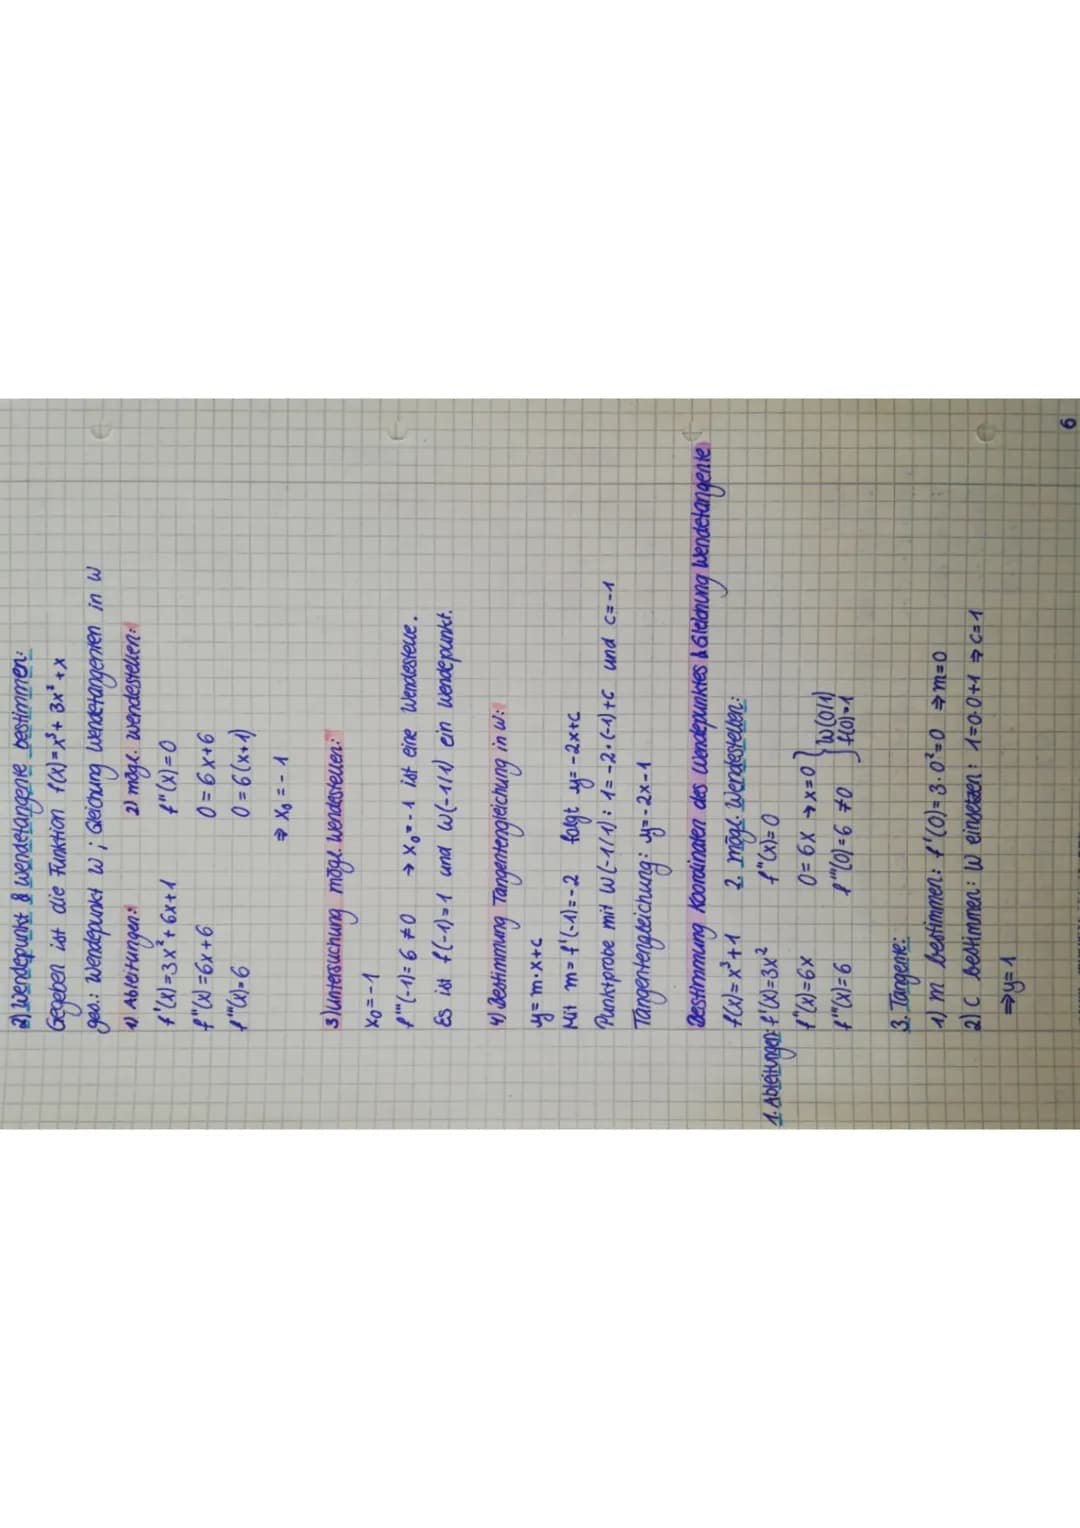 2) Wendepunkt & Wendetangente bestimmen:
Gegeben ist die Funktion f(x)=x³+3x²+x
ges.: Wendepunkt W; Gleichung Wendetangenten in W
1) Ableitungen: 2) mögl. Wendestellen:
f'(x)=3x²+6x+1 f''(x)=0
f''(x)=6x+6 0=6x+6
f'''(x)=6 0=6(x+1)
⇒ x₀=-1
3) Untersuchung mögl. Wendestellen:
x₀=-1
f'''(-1)=6≠0 → x₀=-1 ist eine Wendestelle.
Es ist f(-1)=1 und W(-1/1) ein Wendepunkt.
4) Bestimmung Tangentengleichung in W:
y=m·x+c
Mit m=f'(-1)=-2 folgt y=-2x+c
Punktprobe mit W(-1/1): 1=-2·(-1)+c und c=-1
Tangentengleichung: y=-2x-1
Bestimmung Koordinaten des Wendepunktes & Gleichung Wendetangente
f(x)=x³+1 2. mögl. Wendestellen:
1. Ableitungen: f'(x)=3x² f''(x)=0
f''(x)=6x 0=6x → x=0 } W(0/1)
f'''(x)=6 f'''(0)=6≠0 } f(0)=1
3. Tangente:
1) m bestimmen: f'(0)=3·0²=0 ⇒ m=0
2) C bestimmen: W einsetzen: 1=0·0+1 ⇒ C=1
⇒ y=1
6